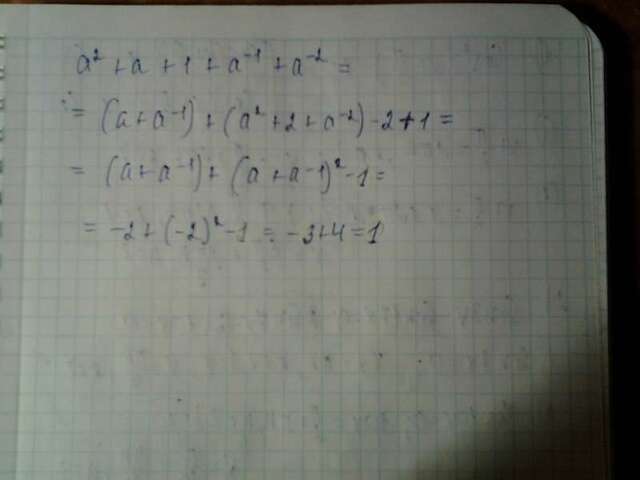 a² + a + 1 + a⁻¹ + a⁻² =
= (a + a⁻¹) + (a² + 2 + a⁻²) - 2 + 1 =
= (a + a⁻¹) + (a + a⁻¹)² - 1 =
= -2 + (-2)² - 1 = -3 + 4 = 1